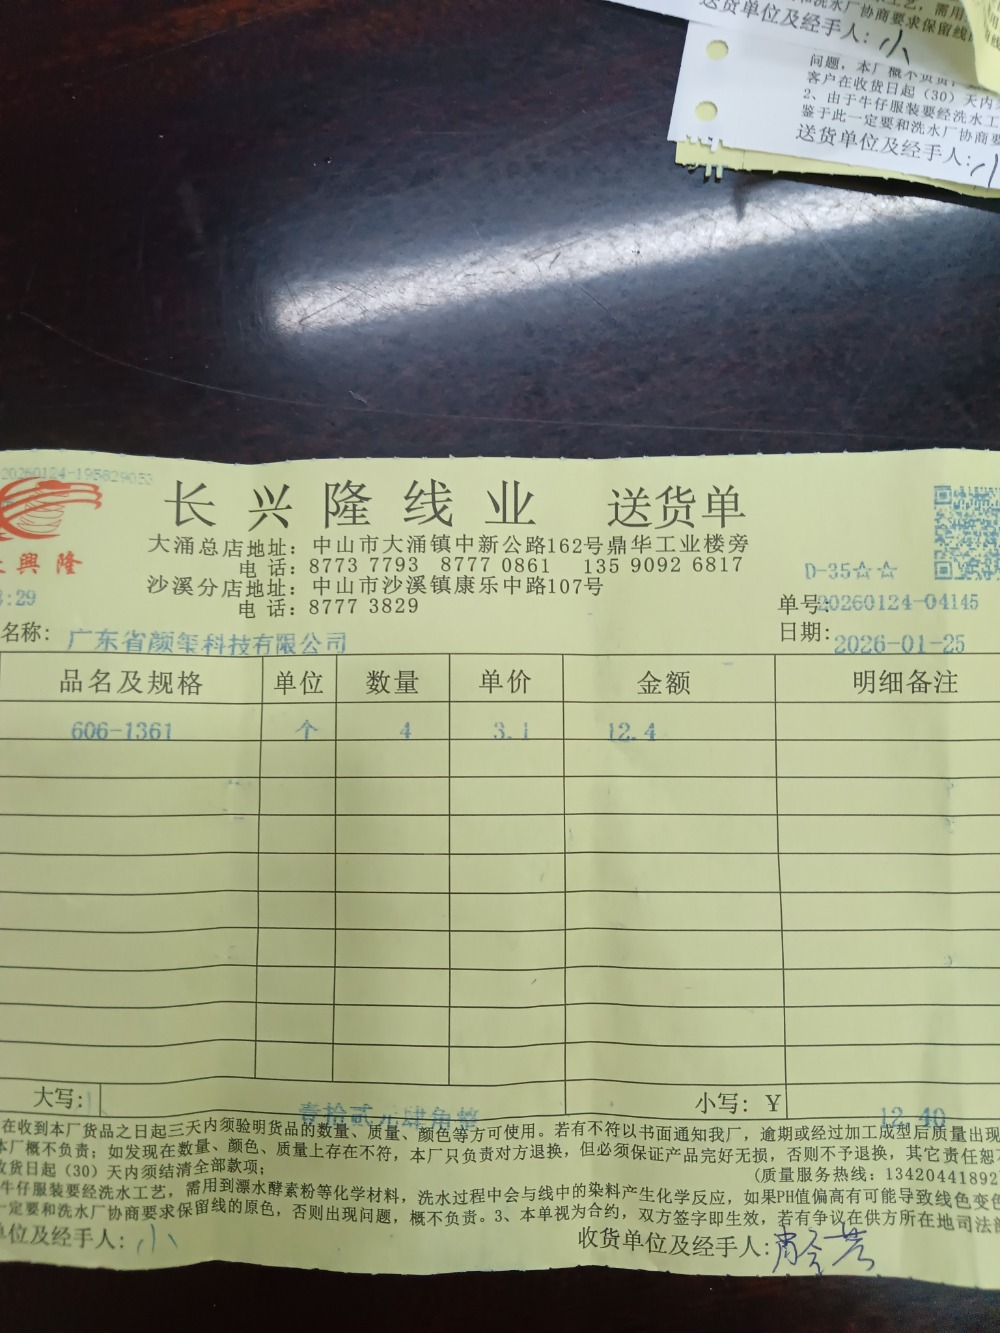 艺，需用
和洗水厂协商要求保留线
送货单位及经手人：小
问题，本厂概不负责，
客户在收货日起（30）天内
2、由于牛仔服装要经洗水工
鉴于此一定要和洗水厂协商要
送货单位及经手人：小
20260124-195829053
长兴隆线业 送货单
興隆
大涌总店地址：中山市大涌镇中新公路162号鼎华工业楼旁
电话：8773 7793 8777 0861 135 9092 6817
沙溪分店地址：中山市沙溪镇康乐中路107号
电话：8777 3829
D-35☆☆
:29
单号：20260124-04145
名称：广东省颜玺科技有限公司
日期：2026-01-25
品名及规格 单位 数量 单价 金额 明细备注
606-1361 个 4 3.1 12.4
大写：壹拾贰元肆角整 小写：￥12.40
在收到本厂货品之日起三天内须验明货品的数量、质量、颜色等方可使用。若有不符以书面通知我厂，逾期或经过加工成型后质量出现
本厂概不负责；如发现在数量、颜色、质量上存在不符，本厂只负责对方退换，但必须保证产品完好无损，否则不予退换，其它责任恕不
收货日起（30）天内须结清全部款项； （质量服务热线：13420441892
牛仔服装要经洗水工艺，需用到漂水酵素粉等化学材料，洗水过程中会与线中的染料产生化学反应，如果PH值偏高有可能导致线色变色
一定要和洗水厂协商要求保留线的原色，否则出现问题，概不负责。3、本单视为合约，双方签字即生效，若有争议在供方所在地司法部
单位及经手人：小 收货单位及经手人：